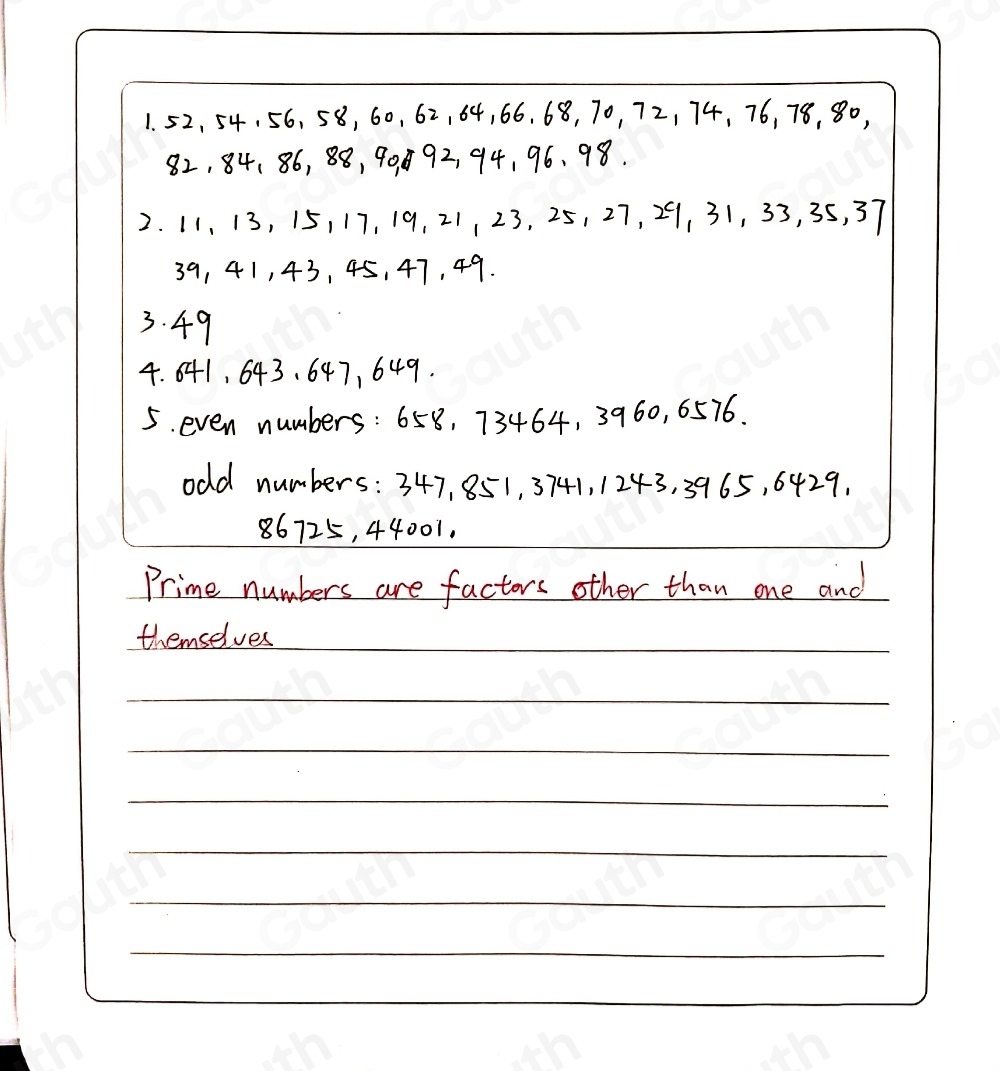 1. 52, 54, 56, 58, 60, 62, 64, 66, 68, 70, 72, 74, 76, 78, 80,
82, 84, 86, 88, 90, 92, 94, 96, 98.
2. 11, 13, 15, 17, 19, 21, 23, 25, 27, 29, 31, 33, 35, 37
39, 41, 43, 45, 47, 49.
3. 49
4. 641, 643, 647, 649.
5. even numbers: 658, 73464, 3960, 6576.
odd numbers: 347, 851, 3741, 1243, 3965, 6429,
86725, 44001.
Prime numbers are factors other than one and
themselves